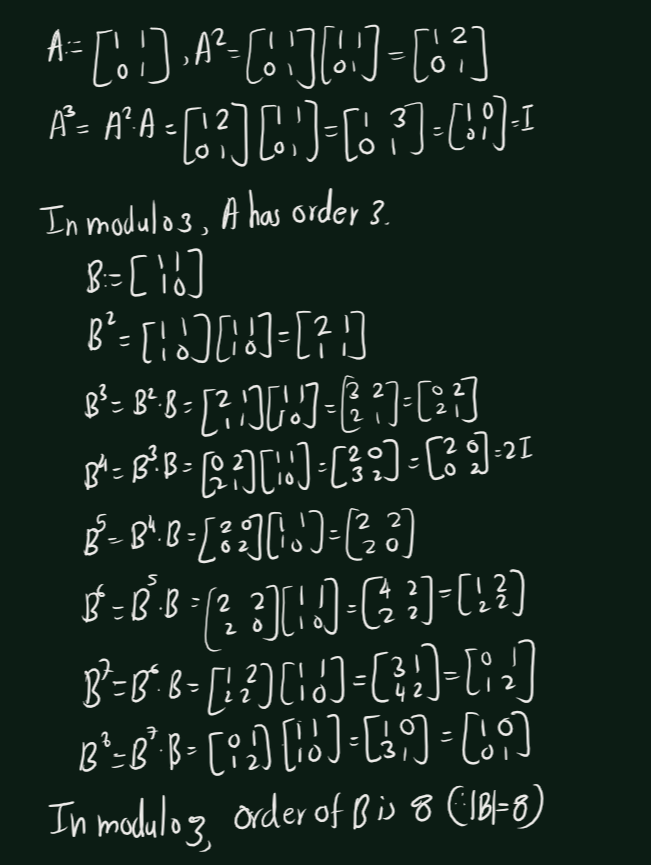 A:= [1 1; 0 1], A² = [1 1; 0 1][1 1; 0 1] = [1 2; 0 1]
A³ = A²·A = [1 2; 0 1][1 1; 0 1] = [1 3; 0 1] = [1 0; 0 1] = I
In modulo 3, A has order 3.
B:= [1 1; 1 0]
B² = [1 1; 1 0][1 1; 1 0] = [2 1; 1 1]
B³ = B²·B = [2 1; 1 1][1 1; 1 0] = [3 2; 2 1] = [0 2; 2 1]
B⁴ = B³·B = [0 2; 2 1][1 1; 1 0] = [2 0; 3 2] = [2 0; 0 2] = 2I
B⁵ = B⁴·B = [2 0; 0 2][1 1; 1 0] = [2 2; 2 0]
B⁶ = B⁵·B = [2 2; 2 0][1 1; 1 0] = [4 2; 2 2] = [1 2; 2 2]
B⁷ = B⁶·B = [1 2; 2 2][1 1; 1 0] = [3 1; 4 2] = [0 1; 1 2]
B⁸ = B⁷·B = [0 1; 1 2][1 1; 1 0] = [1 0; 3 1] = [1 0; 0 1]
In modulo 3, order of B is 8 (∵|B|=8)